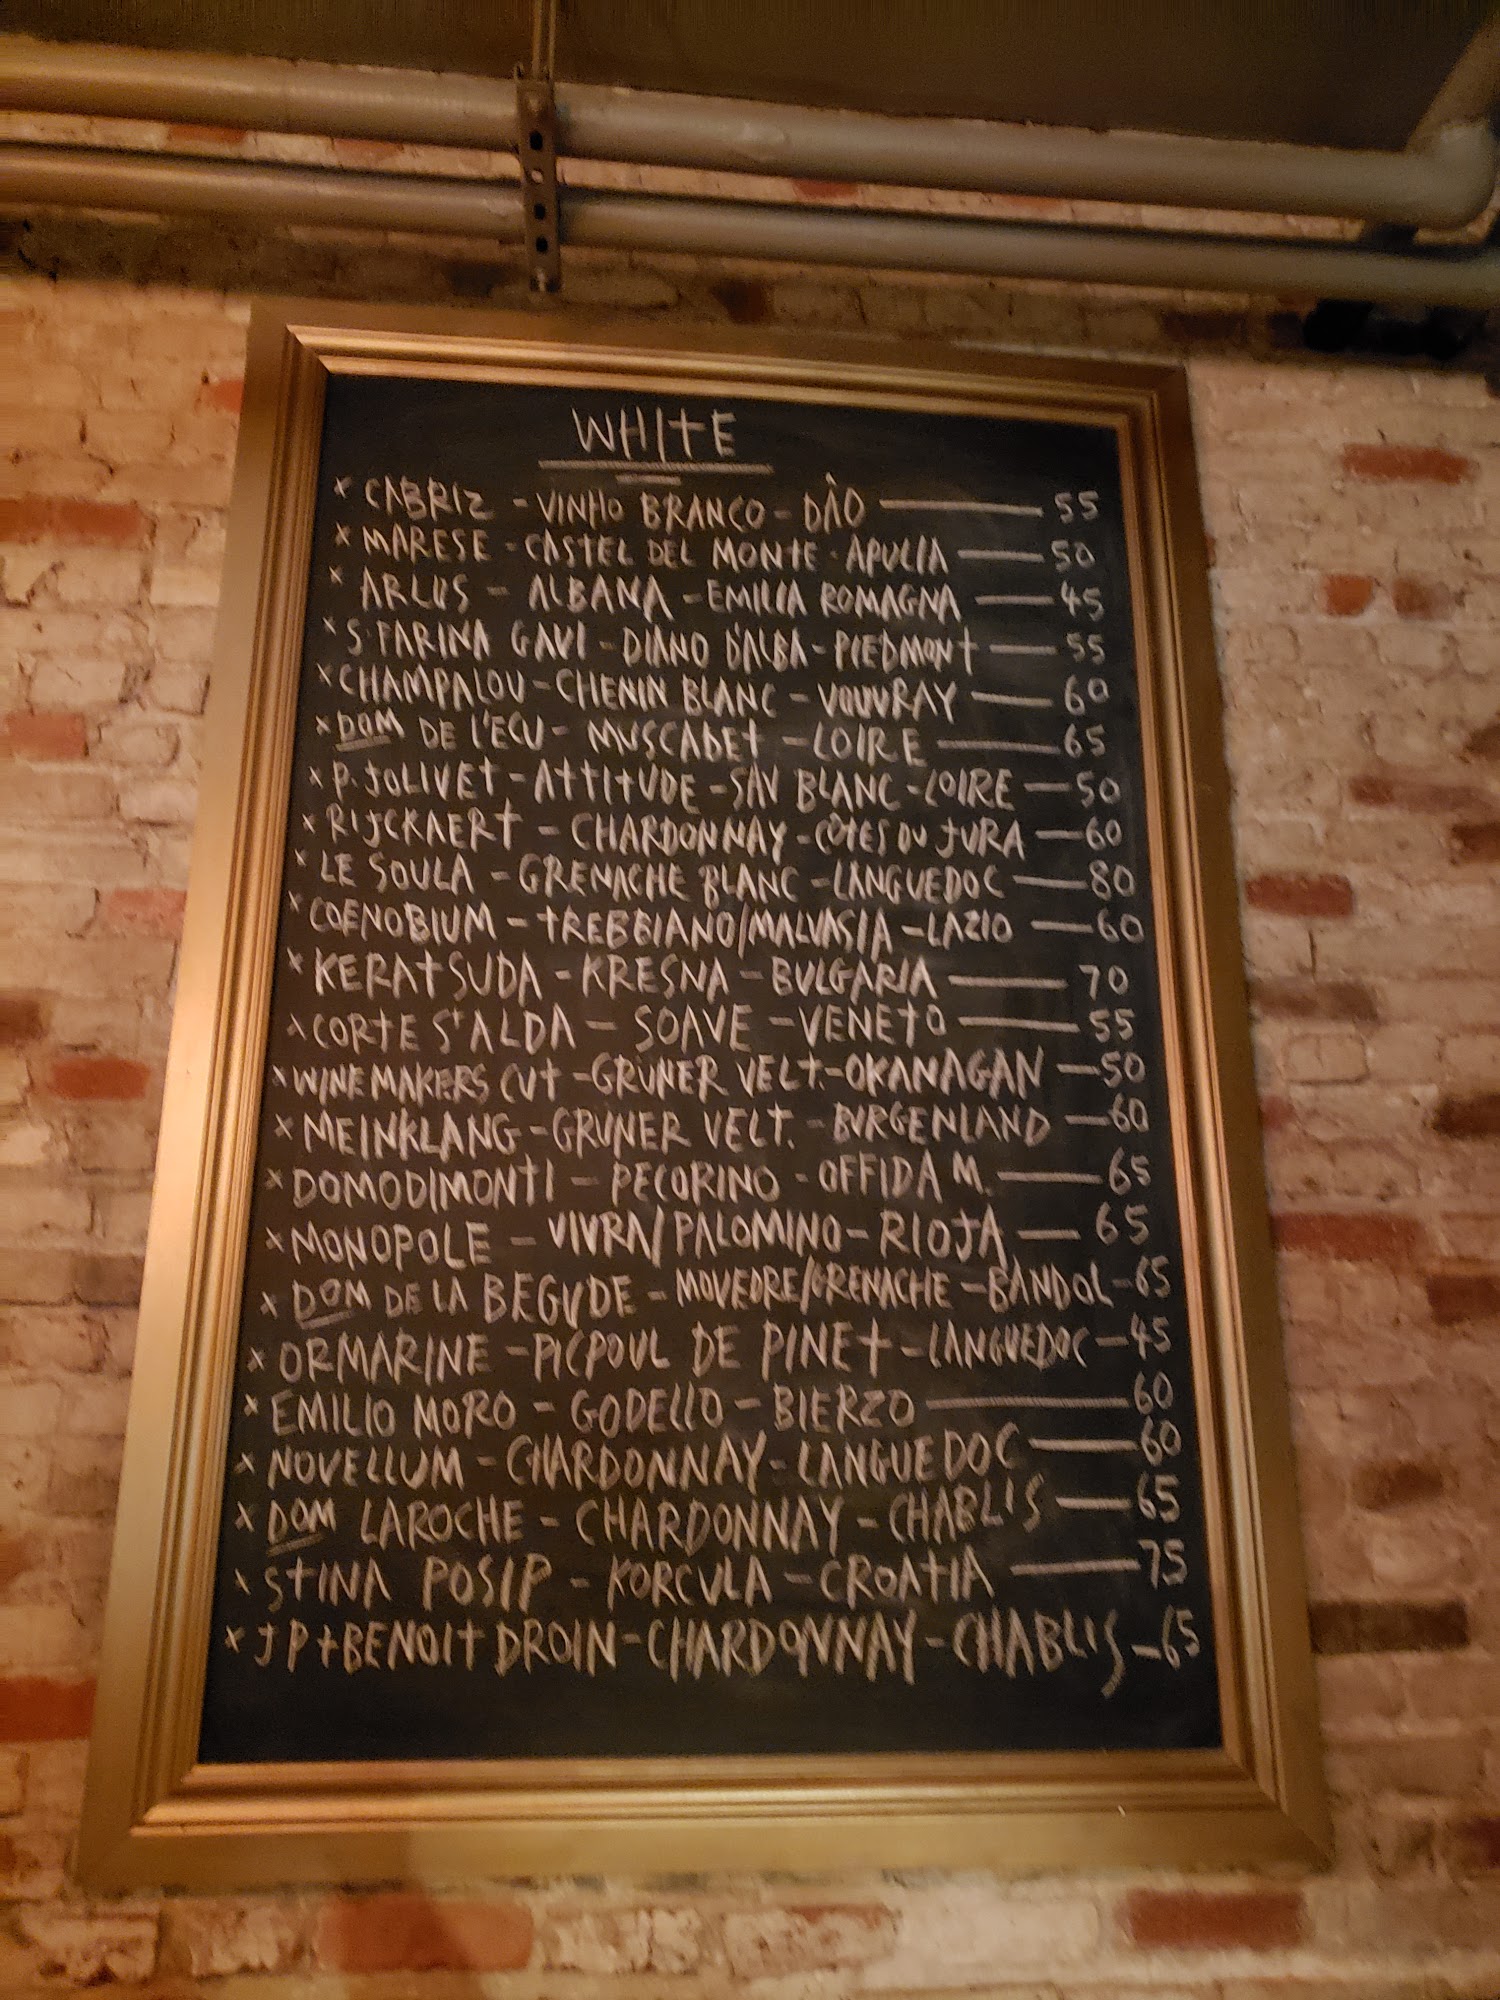 WHITE
x CABRIZ - VINHO BRANCO - DÂO — 55
x MARESE - CASTEL DEL MONTE - APULIA — 50
x ARLUS - ALBANA - EMILIA ROMAGNA — 45
x S. FARINA GAVI - DIANO D'ALBA - PIEDMONT — 55
x CHAMPALOU - CHENIN BLANC - VOUVRAY — 60
x DOM DE L'ECU - MUSCADET - LOIRE — 65
x P. JOLIVET - ATTITUDE - SAV BLANC - LOIRE — 50
x RIJCKAERT - CHARDONNAY - CÔTES DU JURA — 60
x LE SOULA - GRENACHE BLANC - LANGUEDOC — 80
x COENOBIUM - TREBBIANO/MALVASIA - LAZIO — 60
x KERATSUDA - KRESNA - BULGARIA — 70
x CORTE ST ALDA - SOAVE - VENETO — 55
x WINEMAKERS CUT - GRÜNER VELT. - OKANAGAN — 50
x MEINKLANG - GRUNER VELT. - BURGENLAND — 60
x DOMODIMONTI - PECORINO - OFFIDA M. — 65
x MONOPOLE - VIVRA/PALOMINO - RIOJA — 65
x DOM DE LA BEGUDE - MOVEDRE/GRENACHE - BANDOL - 65
x ORMARINE - PICPOUL DE PINET - LANGUEDOC - 45
x EMILIO MORO - GODELLO - BIERZO — 60
x NOVELLUM - CHARDONNAY - LANGUEDOC — 60
x DOM LAROCHE - CHARDONNAY - CHABLIS — 65
x STINA POSIP - KORCULA - CROATIA — 75
x JP + BENOIT DROIN - CHARDONNAY - CHABLIS - 65